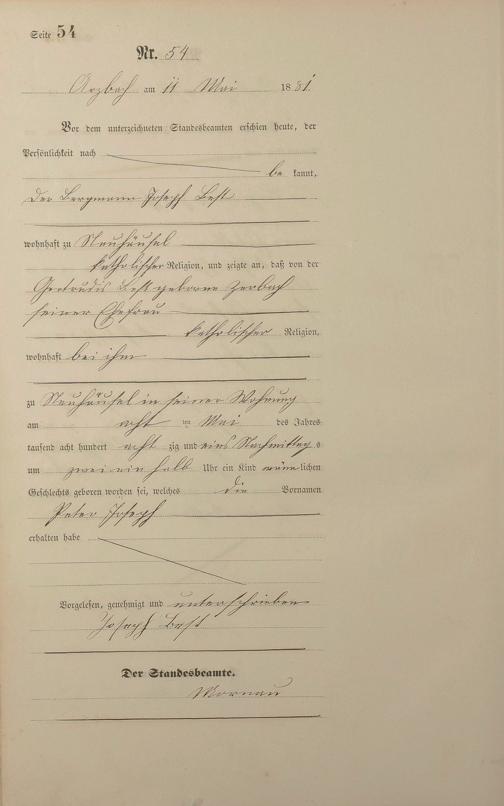 Seite 54
Nr. 54
Arzbach am 11 Mai 1881
Vor dem unterzeichneten Standesbeamten erschien heute, der
Persönlichkeit nach
be kannt,
der Bergmann Joseph Best
wohnhaft zu Neuhäusel
katholischer Religion, und zeigte an, daß von der
Gertrudis Best geborene Zerbach
seiner Ehefrau
katholischer Religion,
wohnhaft bei ihm
zu Neuhäusel in seiner Wohnung
am acht ten Mai des Jahres
tausend acht hundert acht zig und eins Nachmittag s
um zwei ein halb Uhr ein Kind männ lichen
Geschlechts geboren worden sei, welches die Vornamen
Peter Joseph
erhalten habe
Vorgelesen, genehmigt und unterschrieben
Joseph Best
Der Standesbeamte.
Mornau